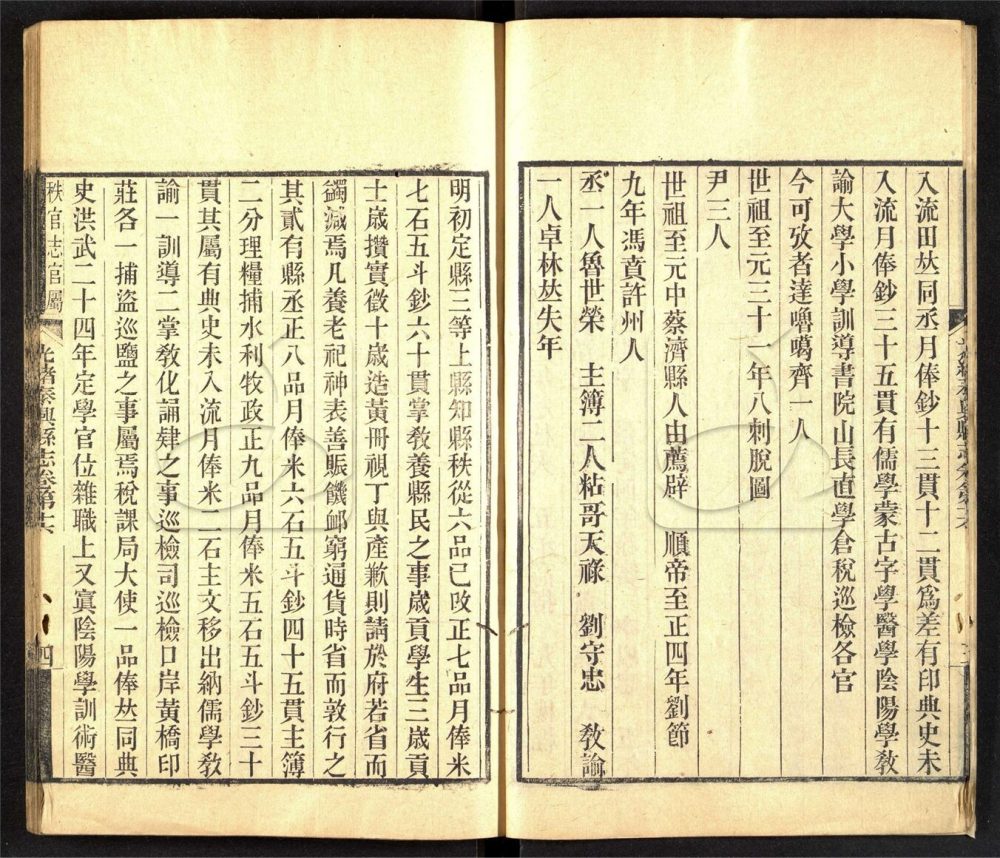 入流田㕘同丞月俸鈔十三貫十二貫爲差有印典史未
入流月俸鈔三十五貫有儒學蒙古字學醫學陰陽學敎
諭大學小學訓導書院山長直學倉稅巡檢各官
今可攷者達嚕噶齊一人
世祖至元三十一年八剌脫圖
尹三人
世祖至元中蔡濟縣人由薦辟　順帝至正四年劉節
九年馮賁許州人
丞一人魯世榮　主簿二人粘哥天祿　劉守忠　敎諭
一人卓林㕘失年
明初定縣三等上縣知縣秩從六品已攺正七品月俸米
七石五斗鈔六十貫掌敎養縣民之事歲貢學生三歲貢
士歲攢實徵十歲造黃冊視丁與產歉則請於府若省而
蠲減焉凡養老祀神表善賑饑卹窮通貨時省而敦行之
其貳有縣丞正八品月俸米六石五斗鈔四十五貫主簿
二分理糧捕水利牧政正九品月俸米五石五斗鈔三十
貫其屬有典史未入流月俸米二石主文移出納儒學敎
諭一訓導二掌敎化誦肄之事巡檢司巡檢口岸黃橋印
莊各一捕盜巡鹽之事屬焉稅課局大使一品俸㕘同典
史洪武二十四年定學官位雜職上又寘陰陽學訓術醫
秩官志官屬
光緒泰興縣志卷第十六
四